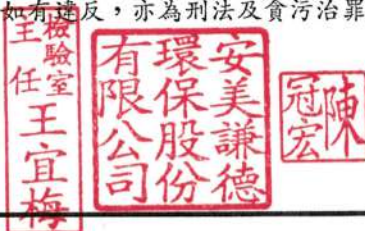 如有違反,亦為刑法及貪污治罪
檢驗室
主任
王宜梅
安美謙德
環保股份
有限公司
陳
冠宏